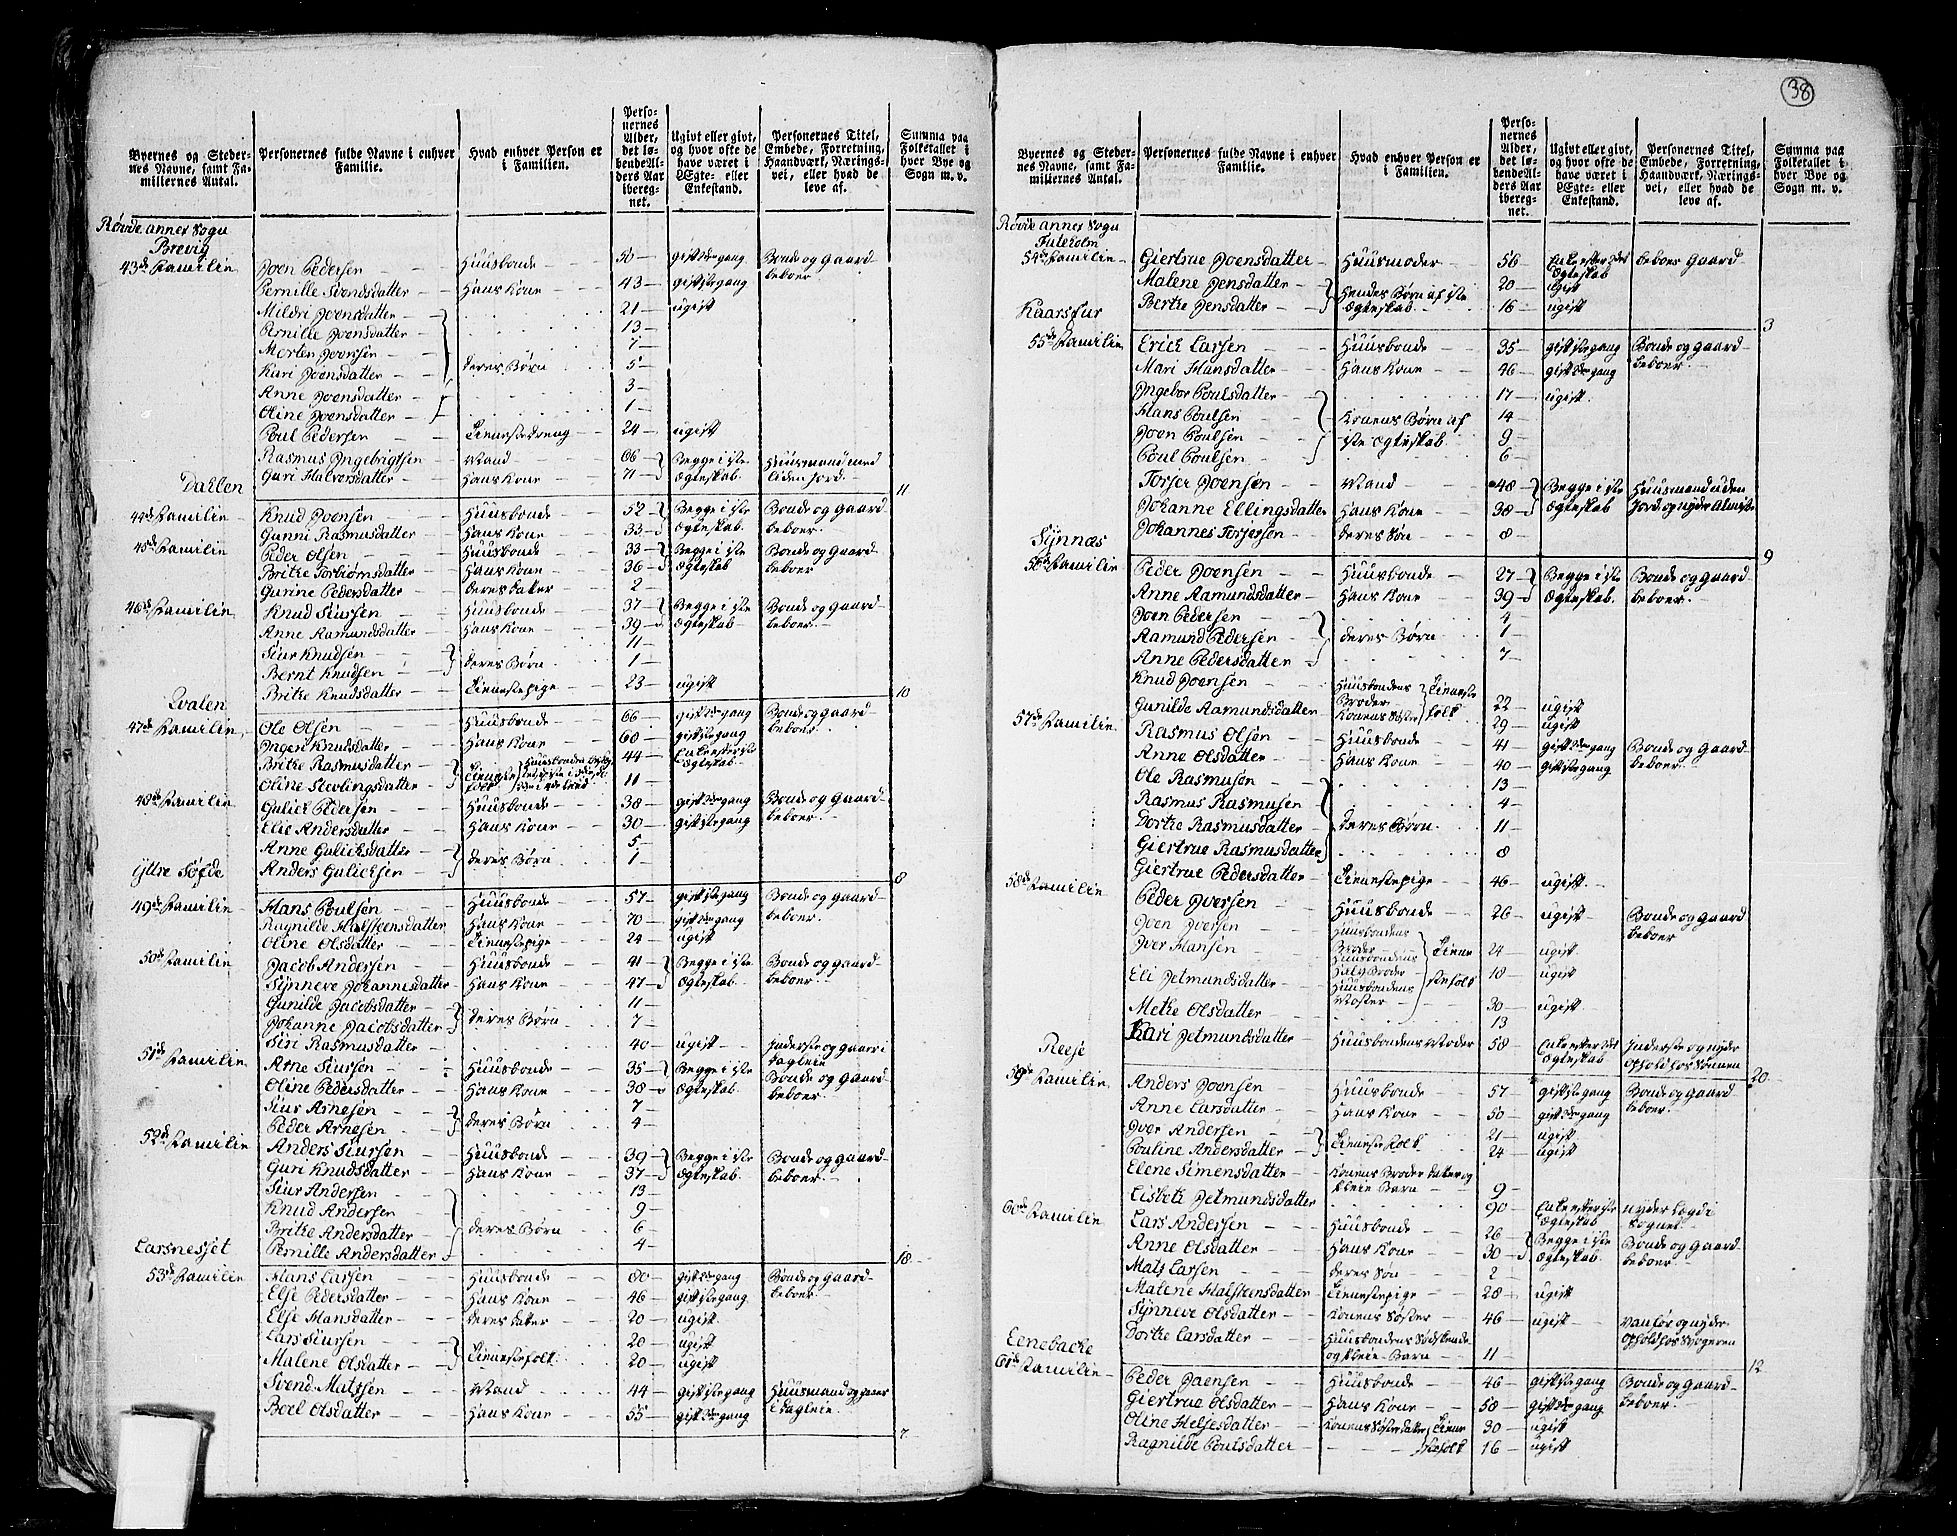 38
Byernes og Steder-
nes Navne, samt Fa-
miliernes Antal.
Personernes fulde Navne i enhver
Familie.
Hvad enhver Person er
i Familien.
Perso-
nernes
Alder,
det lø-
bende Al-
ders Aar
iberegnet.
Ugivt eller givt,
og hvor ofte de
have været i
Ægte- eller
Enkestand.
Personernes Titel,
Embede, Forretning,
Haandværk, Nærings-
vei, eller hvad de
leve af.
Summa paa
Folketallet i
hver Bye og
Sogn m. v.
Røvde annex Sogn
Brevig
43de Familie Joen Pedersen Huusbonde 50 gift 2de gang Bonde og Gaard
Pernille Svendsdatter Hans Kone 43 gift 1ste gang beboer
Mildri Joensdatter 21 ugift
Pernille Joensdatter 13
Morten Joensen 7
Kari Joensdatter deres Børn 5
Anne Joensdatter 3
Oline Joensdatter 1
Poul Pedersen Tienestedreng 24 ugift
Rasmus Ingebrigtsen Mand 66 Begge i 1ste Huusmand med
Guri Halvorsdatter Hans Kone 71 Ægteskab liden Jord
Dahlen 11
44de Familie Knud Joensen Huusbonde 52 Begge i 1ste Bonde og Gaard
Gunni Rasmusdatter Hans Kone 33 Ægteskab beboer
45de Familie Peder Olsen Huusbonde 33 Begge i 1ste Bonde og Gaard
Brithe Torbiørnsdatter Hans Kone 36 Ægteskab beboer
Gurine Pedersdatter deres datter 2
46de Familie Knud Siursen Huusbonde 37 Begge i 1ste Bonde og Gaard
Anne Aamundsdatter Hans Kone 39 Ægteskab beboer
Siur Knudsen 11
Bernt Knudsen deres Børn 1
Brithe Knudsdatter Tienestepige 23 ugift
Qvalen 10
47de Familie Ole Olsen Huusbonde 66 gift 2de gang Bonde og Gaard
Ingeri Knudsdatter Hans Kone 60 gift 1ste gang beboer
Brithe Rasmusdatter Tieneste 44 Enke efter 1ste Ægteskab
Oline Stevlingsdatter folk 11
48de Familie Gulick Pedersen Huusbonde 38 gift 2de gang Bonde og Gaard
Elie Andersdatter Hans Kone 30 gift 1ste gang beboer
Anne Gulicksdatter 5
Anders Gulicksen deres Børn 1
Yttre Søfde 8
49de Familie Hans Poulsen Huusbonde 57 gift 1ste gang Bonde og Gaard
Ragnilde Halsteensdatter Hans Kone 70 gift 2de gang beboer
Oline Olsdatter Tienestepige 24 ugift
50de Familie Jacob Andersen Huusbonde 41 Begge i 1ste Bonde og Gaard
Synneve Johannesdatter Hans Kone 47 Ægteskab beboer
Gunilde Jacobsdatter 11
Johanne Jacobsdatter deres Børn 7
Siri Rasmusdatter 40 ugift Inderste og gaar i dagleie
51de Familie Arne Siursen Huusbonde 35 Begge i 1ste Bonde og Gaard
Oline Pedersdatter Hans Kone 38 Ægteskab beboer
Siur Arnesen 7
Peder Arnesen deres Børn 4
52de Familie Anders Siursen Huusbonde 39 Begge i 1ste Bonde og Gaard
Guri Knudsdatter Hans Kone 37 Ægteskab beboer
Siur Andersen 13
Knud Andersen 9
Brithe Andersdatter deres Børn 6
Pernille Andersdatter 4
Larsnesset 18
53de Familie Hans Larsen Huusbonde 80 gift 2de gang Bonde og Gaard
Else Pedersdatter Hans Kone 46 gift 1ste gang beboer
Else Hansdatter deres datter 20 ugift
Lars Siursen 20 ugift
Malene Olsdatter Tienestefolk 20 ugift
Svend Matssen Mand 44 gift 1ste gang Huusmand og gaaer
Boel Olsdatter Hans Kone 55 gift 2de gang i dagleie
7
Byernes og Steder-
nes Navne, samt Fa-
miliernes Antal.
Personernes fulde Navne i enhver
Familie.
Hvad enhver Person er
i Familien.
Perso-
nernes
Alder,
det lø-
bende Al-
ders Aar
iberegnet.
Ugivt eller givt,
og hvor ofte de
have været i
Ægte- eller
Enkestand.
Personernes Titel,
Embede, Forretning,
Haandværk, Nærings-
vei, eller hvad de
leve af.
Summa paa
Folketallet i
hver Bye og
Sogn m. v.
Røvde annex Sogn
Fuleholm
54de Familie Giertrue Joensdatter Huusmoder 56 Enke efter 2det Ægteskab beboer Gaard
Malene Jensdatter Hendes Børn af 1ste 20 ugift
Berthe Jensdatter Ægteskab 16 ugift
Kaarsfur 3
55de Familie Erick Larsen Huusbonde 35 gift 1ste gang Bonde og Gaard
Mari Hansdatter Hans Kone 46 gift 2de gang beboer
Ingebor Poulsdatter 17 ugift
Hans Poulsen Konens Børn af 14
Joen Poulsen 1ste Ægteskab 9
Poul Poulsen 6
Torser Joensen Mand 48 Begge i 1ste Huusmand uden
Johanne Ellingsdatter Hans Kone 38 Ægteskab Jord, og nyder Almisse
Johannes Torsersen deres Søn 8
Synnæs 9
56de Familie Peder Joensen Huusbonde 27 Begge i 1ste Bonde og Gaard
Anne Aamundsdatter Hans Kone 39 Ægteskab beboer
Joen Pedersen 4
Aamund Pedersen deres Børn 1
Anne Pedersdatter 7
Knud Joensen Huusbondens Broder Tieneste 22 ugift
Gunilde Aamundsdatter Konens Søster folk 29 ugift
57de Familie Rasmus Olsen Huusbonde 41 gift 2de gang Bonde og Gaard
Anne Olsdatter Hans Kone 40 gift 1ste gang beboer
Ole Rasmusen 13
Rasmus Rasmusen 4
Dorthe Rasmusdatter deres Børn 11
Giertrue Rasmusdatter 8
Giertrue Pedersdatter Tienestepige 46 ugift
58de Familie Peder Iversen Huusbonde 26 ugift Bonde og Gaard beboer
Joen Iversen Huusbondens Broder Tiene 24 ugift
Iver Hansen Huusbondens Halv Broder 18 ugift
Eli Jetmundsdatter Huusbondens Moster stefolk 30 ugift
Methe Olsdatter 13
Kari Jetmundsdatter Huusbondens Moder 58 Enke efter 2det Ægteskab Inderste og nyder Ophold hos Sønnen
Reese 20
59de Familie Anders Joensen Huusbonde 57 gift 1ste gang Bonde og Gaard
Anne Larsdatter Hans Kone 50 gift 2de gang beboer
Iver Andersen 21 ugift
Pouline Andersdatter Tienestefolk 24 ugift
Elene Simensdatter Konens Broder datter og Pleie Barn 9
Lisbeth Jetmundsdatter 90 Enke efter 1ste Ægteskab nyder Lægd i Sognet
60de Familie Lars Andersen Huusbonde 26 Begge i 1ste Bonde og Gaard
Anne Olsdatter Hans Kone 30 Ægteskab beboer
Mats Larsen deres Søn 2
Malene Halsteensdatter Tienestepige 28 ugift
Synneve Olsdatter Konens Søster 46 ugift Vanför og nyder
Dorthe Larsdatter Huusbondens Sødskende og Pleie Barn 11 Ophold hos Svogeren
Eenebacke 12
61de Familie Peder Joensen Huusbonde 46 gift 1ste gang Bonde og Gaard
Giertrue Olsdatter Hans Kone 58 gift 2de gang beboer
Oline Helsesdatter Konens Søster datter Tiene 30 ugift
Ragnilde Poulsdatter stefolk 16 ugift